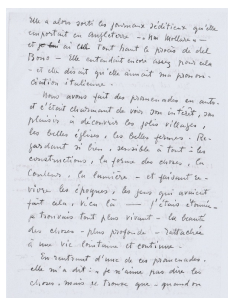 Elle a alors sorti les journaux séditieux qu'elle
emportait en Angleterre
et lu tout haut le procès de del
Bono - Elle entendait encore assez pour cela
- et elle disait qu'elle aimait ma pronon-
ciation italienne.
Nous avons fait des promenades en auto.
et c'était charmant de voir son intérêt, son
plaisir à découvrir les jolis villages,
les belles églises, les belles fermes. Re-
gardant si bien, sensible à tout : les
constructions, la forme des choses, la
couleur, la lumière - et faisant re-
vivre les époques, les gens qui avaient
fait cela, vécu là — J'étais étonnée
je trouvais tout plus vivant - la beauté
des choses - plus profonde - rattachée
à une vie lointaine et continue.
En rentrant d'une de ces promenades.
elle m'a dit : je n'aime pas dire les
choses, mais je trouve que - quand on